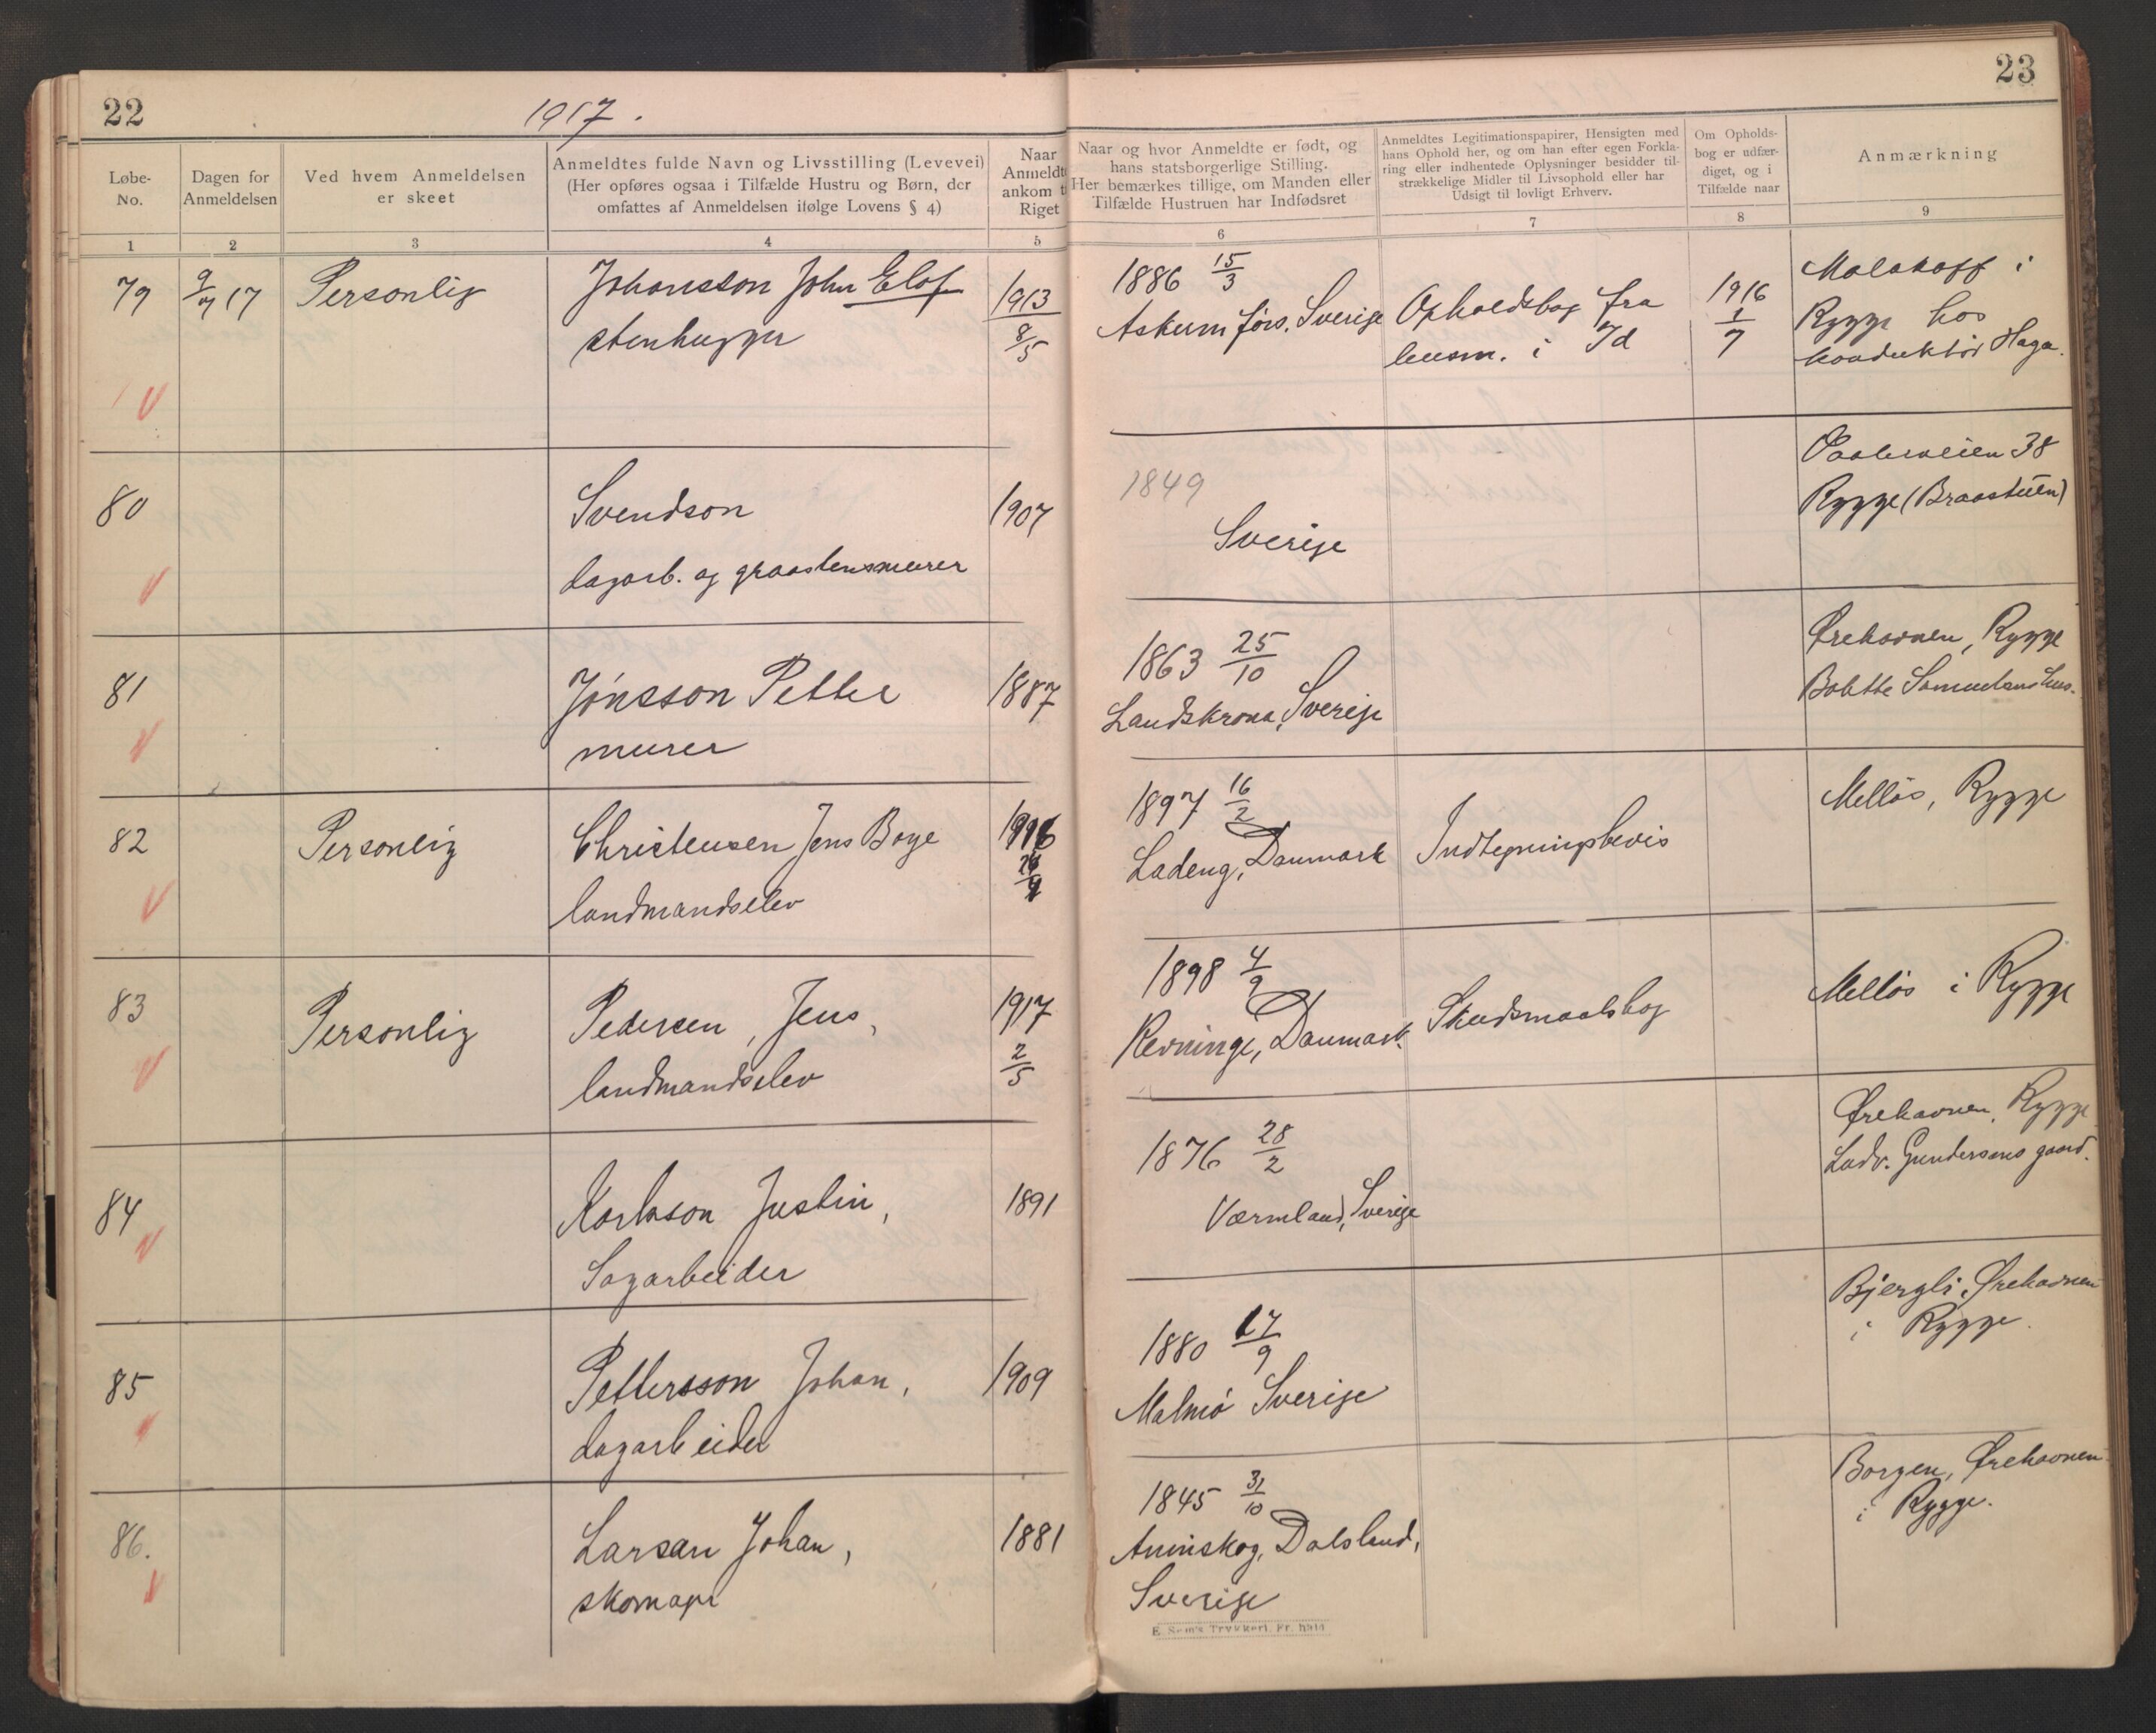 22
1917.
23
Løbe-
No.
Dagen for
Anmeldelsen
Ved hvem Anmeldelsen
er skeet
Anmeldtes fulde Navn og Livsstilling (Levevei)
(Her opføres ogsaa i Tilfælde Hustru og Børn, der
omfattes af Anmeldelsen ifølge Lovens § 4)
Naar
Anmeldte
ankom t
Riget
Naar og hvor Anmeldte er født, og
hans statsborgerlige Stilling.
Her bemærkes tillige, om Manden eller
Tilfælde Hustruen har Indfødsret
Anmeldtes Legitimationspapirer, Hensigten med
hans Ophold her, og om han efter egen Forkla-
ring eller indhentede Oplysninger besidder til-
strækkelige Midler til Livsophold eller har
Udsigt til lovligt Erhverv.
Om Opholds-
bog er udfær-
diget, og i
Tilfælde naar
Anmærkning
1 2 3 4 5 6 7 8 9
79
9/7 17
Personlig
Johansson John Elof
stenhugger
1913
8/5
1886 15/3
Askum förs. Sverige
Opholdsbog fra
lensm. i Id
1916
1/7
Malakoff i
Rygge hos
konduktör Haga.
80
Svendson
dagarb. og graastensmurer
1907
1849
Sverige
38
Rygge (Braasteen)
81
Jönsson Petter
murer
1887
1863 25/10
Landskrona, Sverige
Ørehavnen, Rygge
Bolette
82
Personlig
Christensen Jens Boye
landmandselev
1916
1897 16/2
Ladeng, Danmark
Indtegningsbevis
Mellös, Rygge
83
Personlig
Pedersen, Jens,
landmandselev
1917
2/5
1898 4/9
Revninge, Danmark.
Skudsmaalsbog
Mellös i Rygge
84
Karlsson Justin,
Sagarbeider
1891
1876 28/2
Værmland, Sverige
Ørehavnen, Rygge
Ludv. Gundersens gaard.
85
Pettersson Johan,
dagarbeider
1909
1880 17/9
Malmö Sverige
Bjergli, Ørehavnen
i Rygge.
86.
Larsan Johan,
skomager
1881
1845 31/10
Ånimskog, Dalsland,
Sverige
Borgen, Ørehavnen
i Rygge.
E. Sem's Trykkeri, Fr.hald